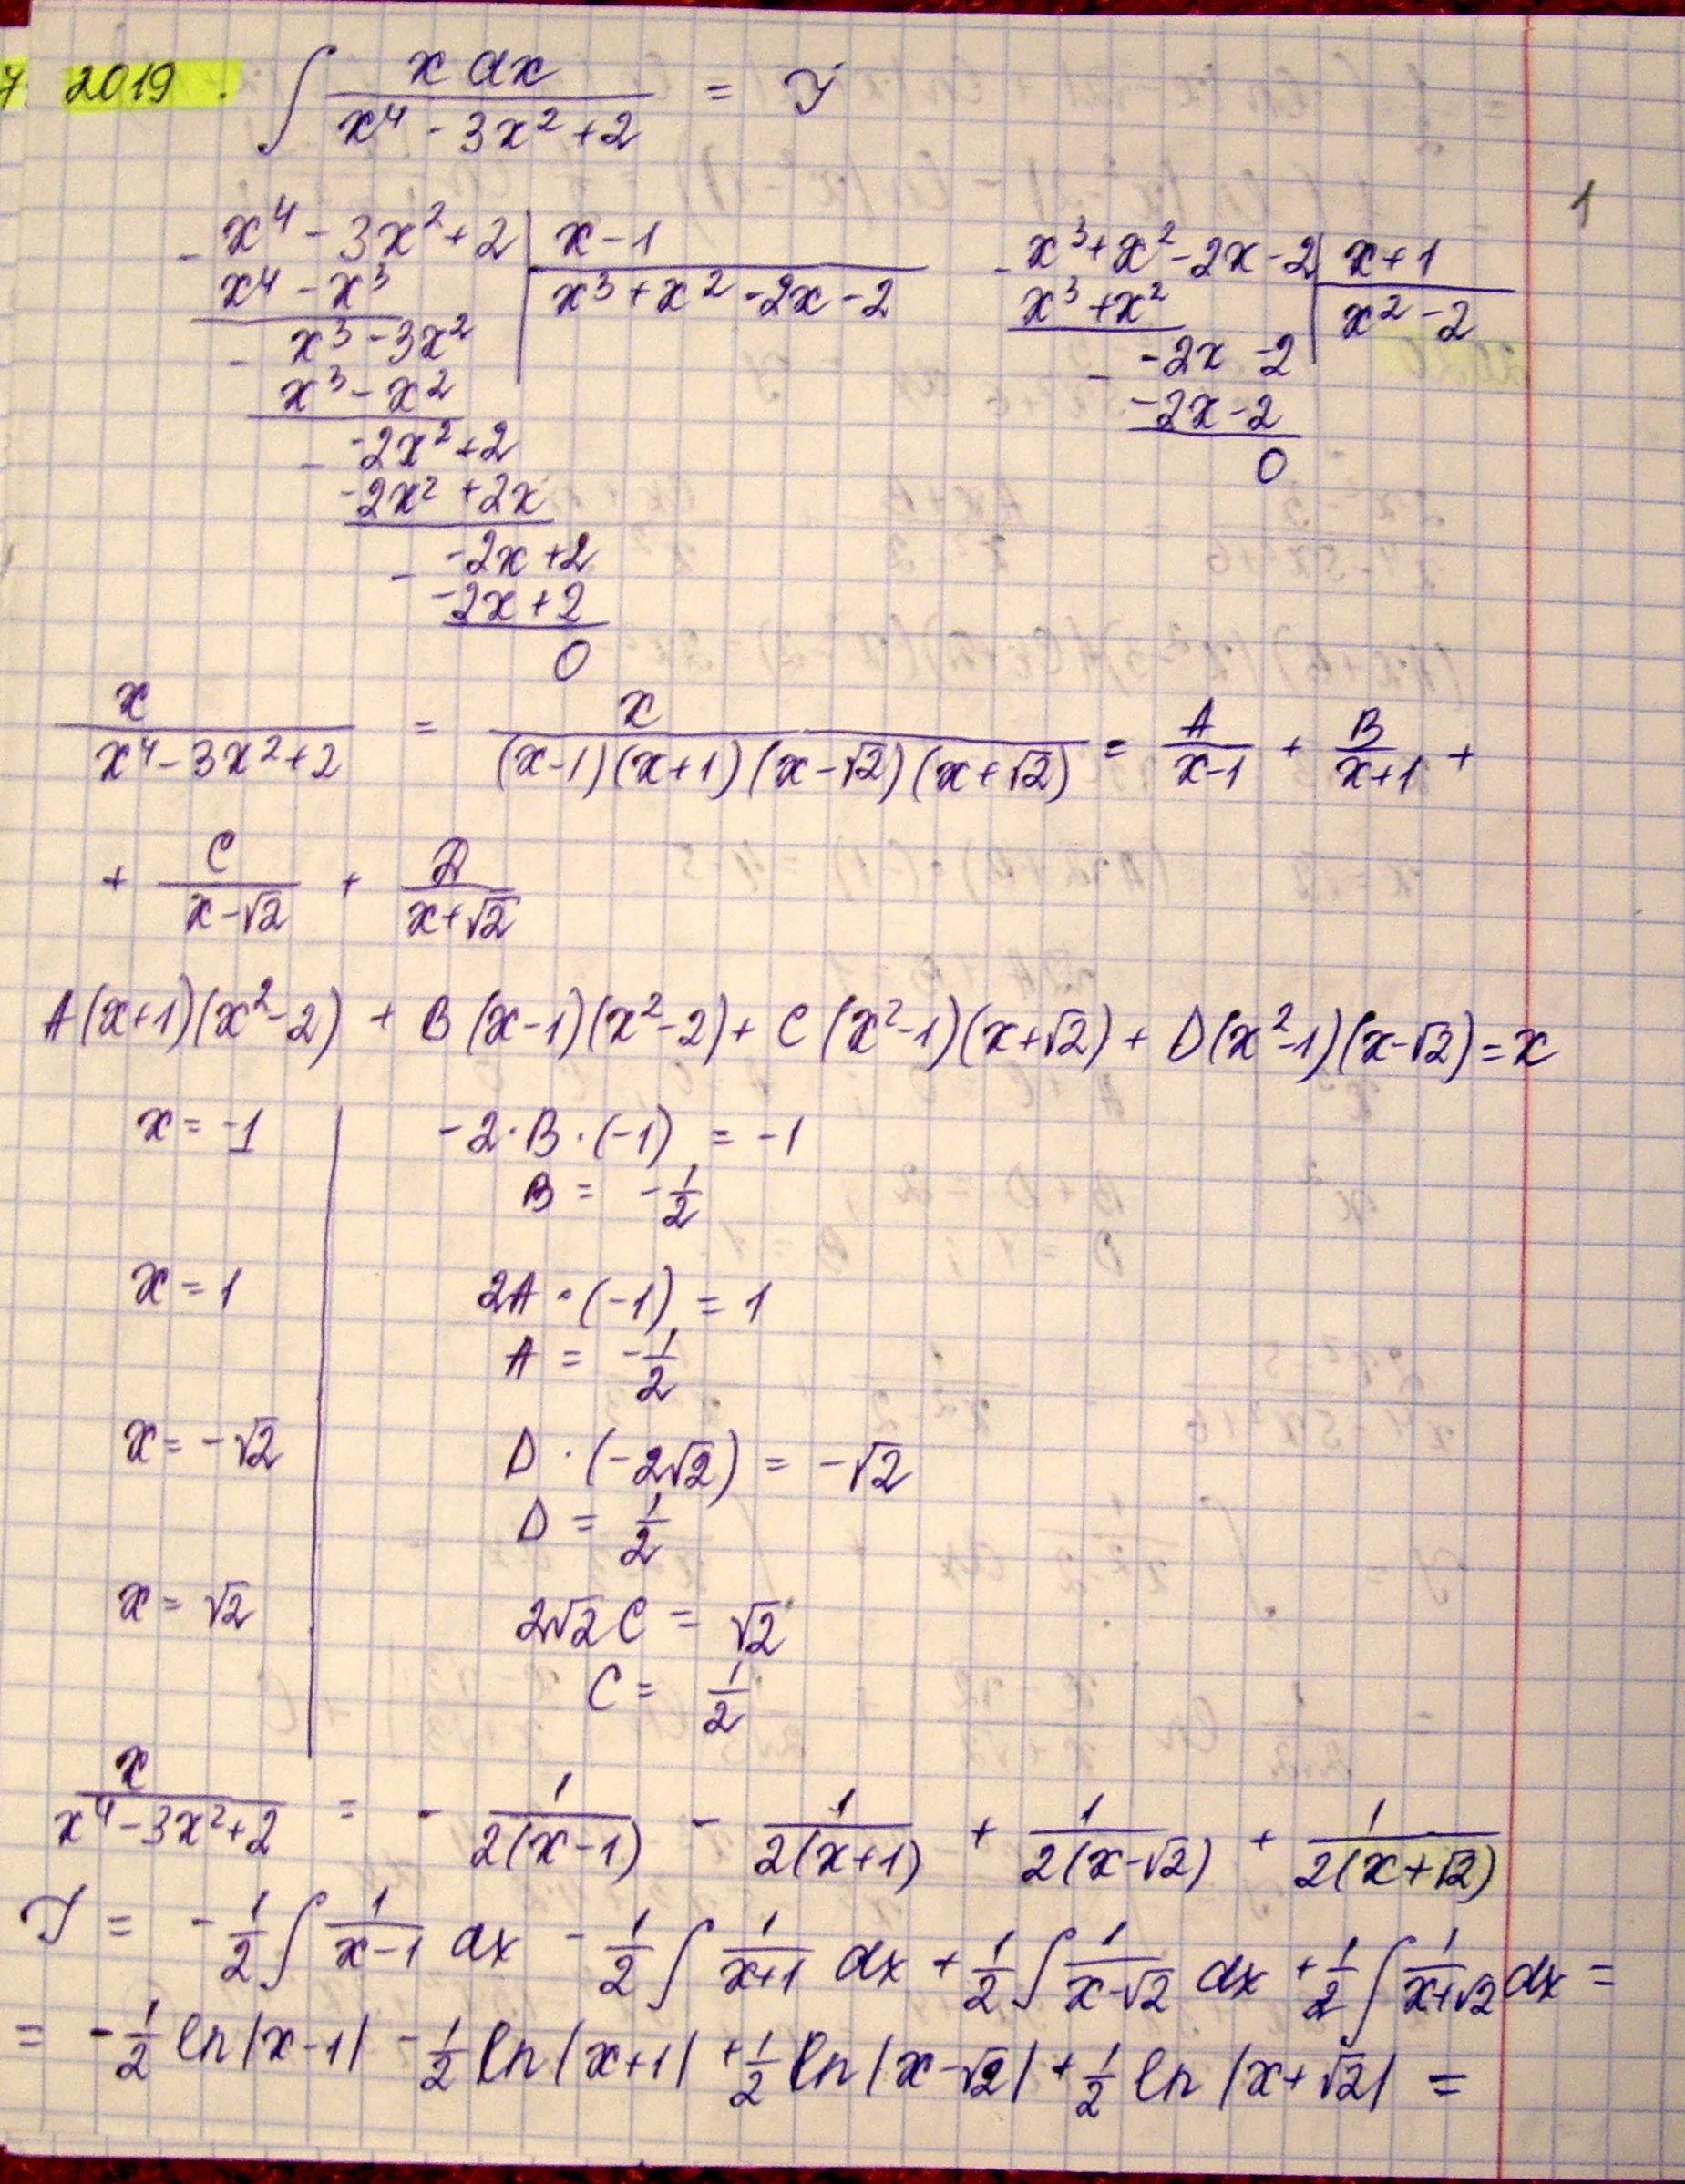 7. 2019. ∫ x dx / (x⁴ - 3x² + 2) = J
1
x⁴ - 3x² + 2 | x - 1
x⁴ - x³ | x³ + x² - 2x - 2
x³ - 3x²
x³ - x²
-2x² + 2
-2x² + 2x
-2x + 2
-2x + 2
0
x³ + x² - 2x - 2 | x + 1
x³ + x² | x² - 2
-2x - 2
-2x - 2
0
x / (x⁴ - 3x² + 2) = x / ((x-1)(x+1)(x-√2)(x+√2)) = A/(x-1) + B/(x+1) +
+ C/(x-√2) + D/(x+√2)
A(x+1)(x²-2) + B(x-1)(x²-2) + C(x²-1)(x+√2) + D(x²-1)(x-√2) = x
x = -1 | -2·B·(-1) = -1
B = -1/2
x = 1 | 2A·(-1) = 1
A = -1/2
x = -√2 | D·(-2√2) = -√2
D = 1/2
x = √2 | 2√2 C = √2
C = 1/2
x / (x⁴ - 3x² + 2) = - 1/(2(x-1)) - 1/(2(x+1)) + 1/(2(x-√2)) + 1/(2(x+√2))
J = -1/2 ∫ 1/(x-1) dx - 1/2 ∫ 1/(x+1) dx + 1/2 ∫ 1/(x-√2) dx + 1/2 ∫ 1/(x+√2) dx =
= -1/2 ln|x-1| - 1/2 ln|x+1| + 1/2 ln|x-√2| + 1/2 ln|x+√2| =